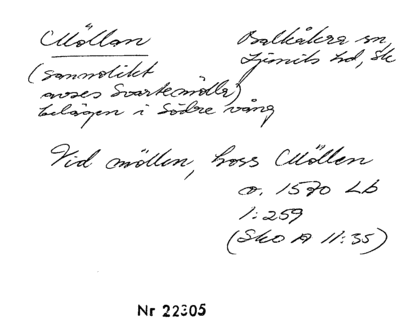 Möllan Balkåkra sn
(sannolikt Ljunits hd, Sk
avses Svartemölla)
belägen i Södre vång
Vid möllen, hoss Möllen
c. 1570 Lb
1:259
(Sko A II:35)
Nr 22305